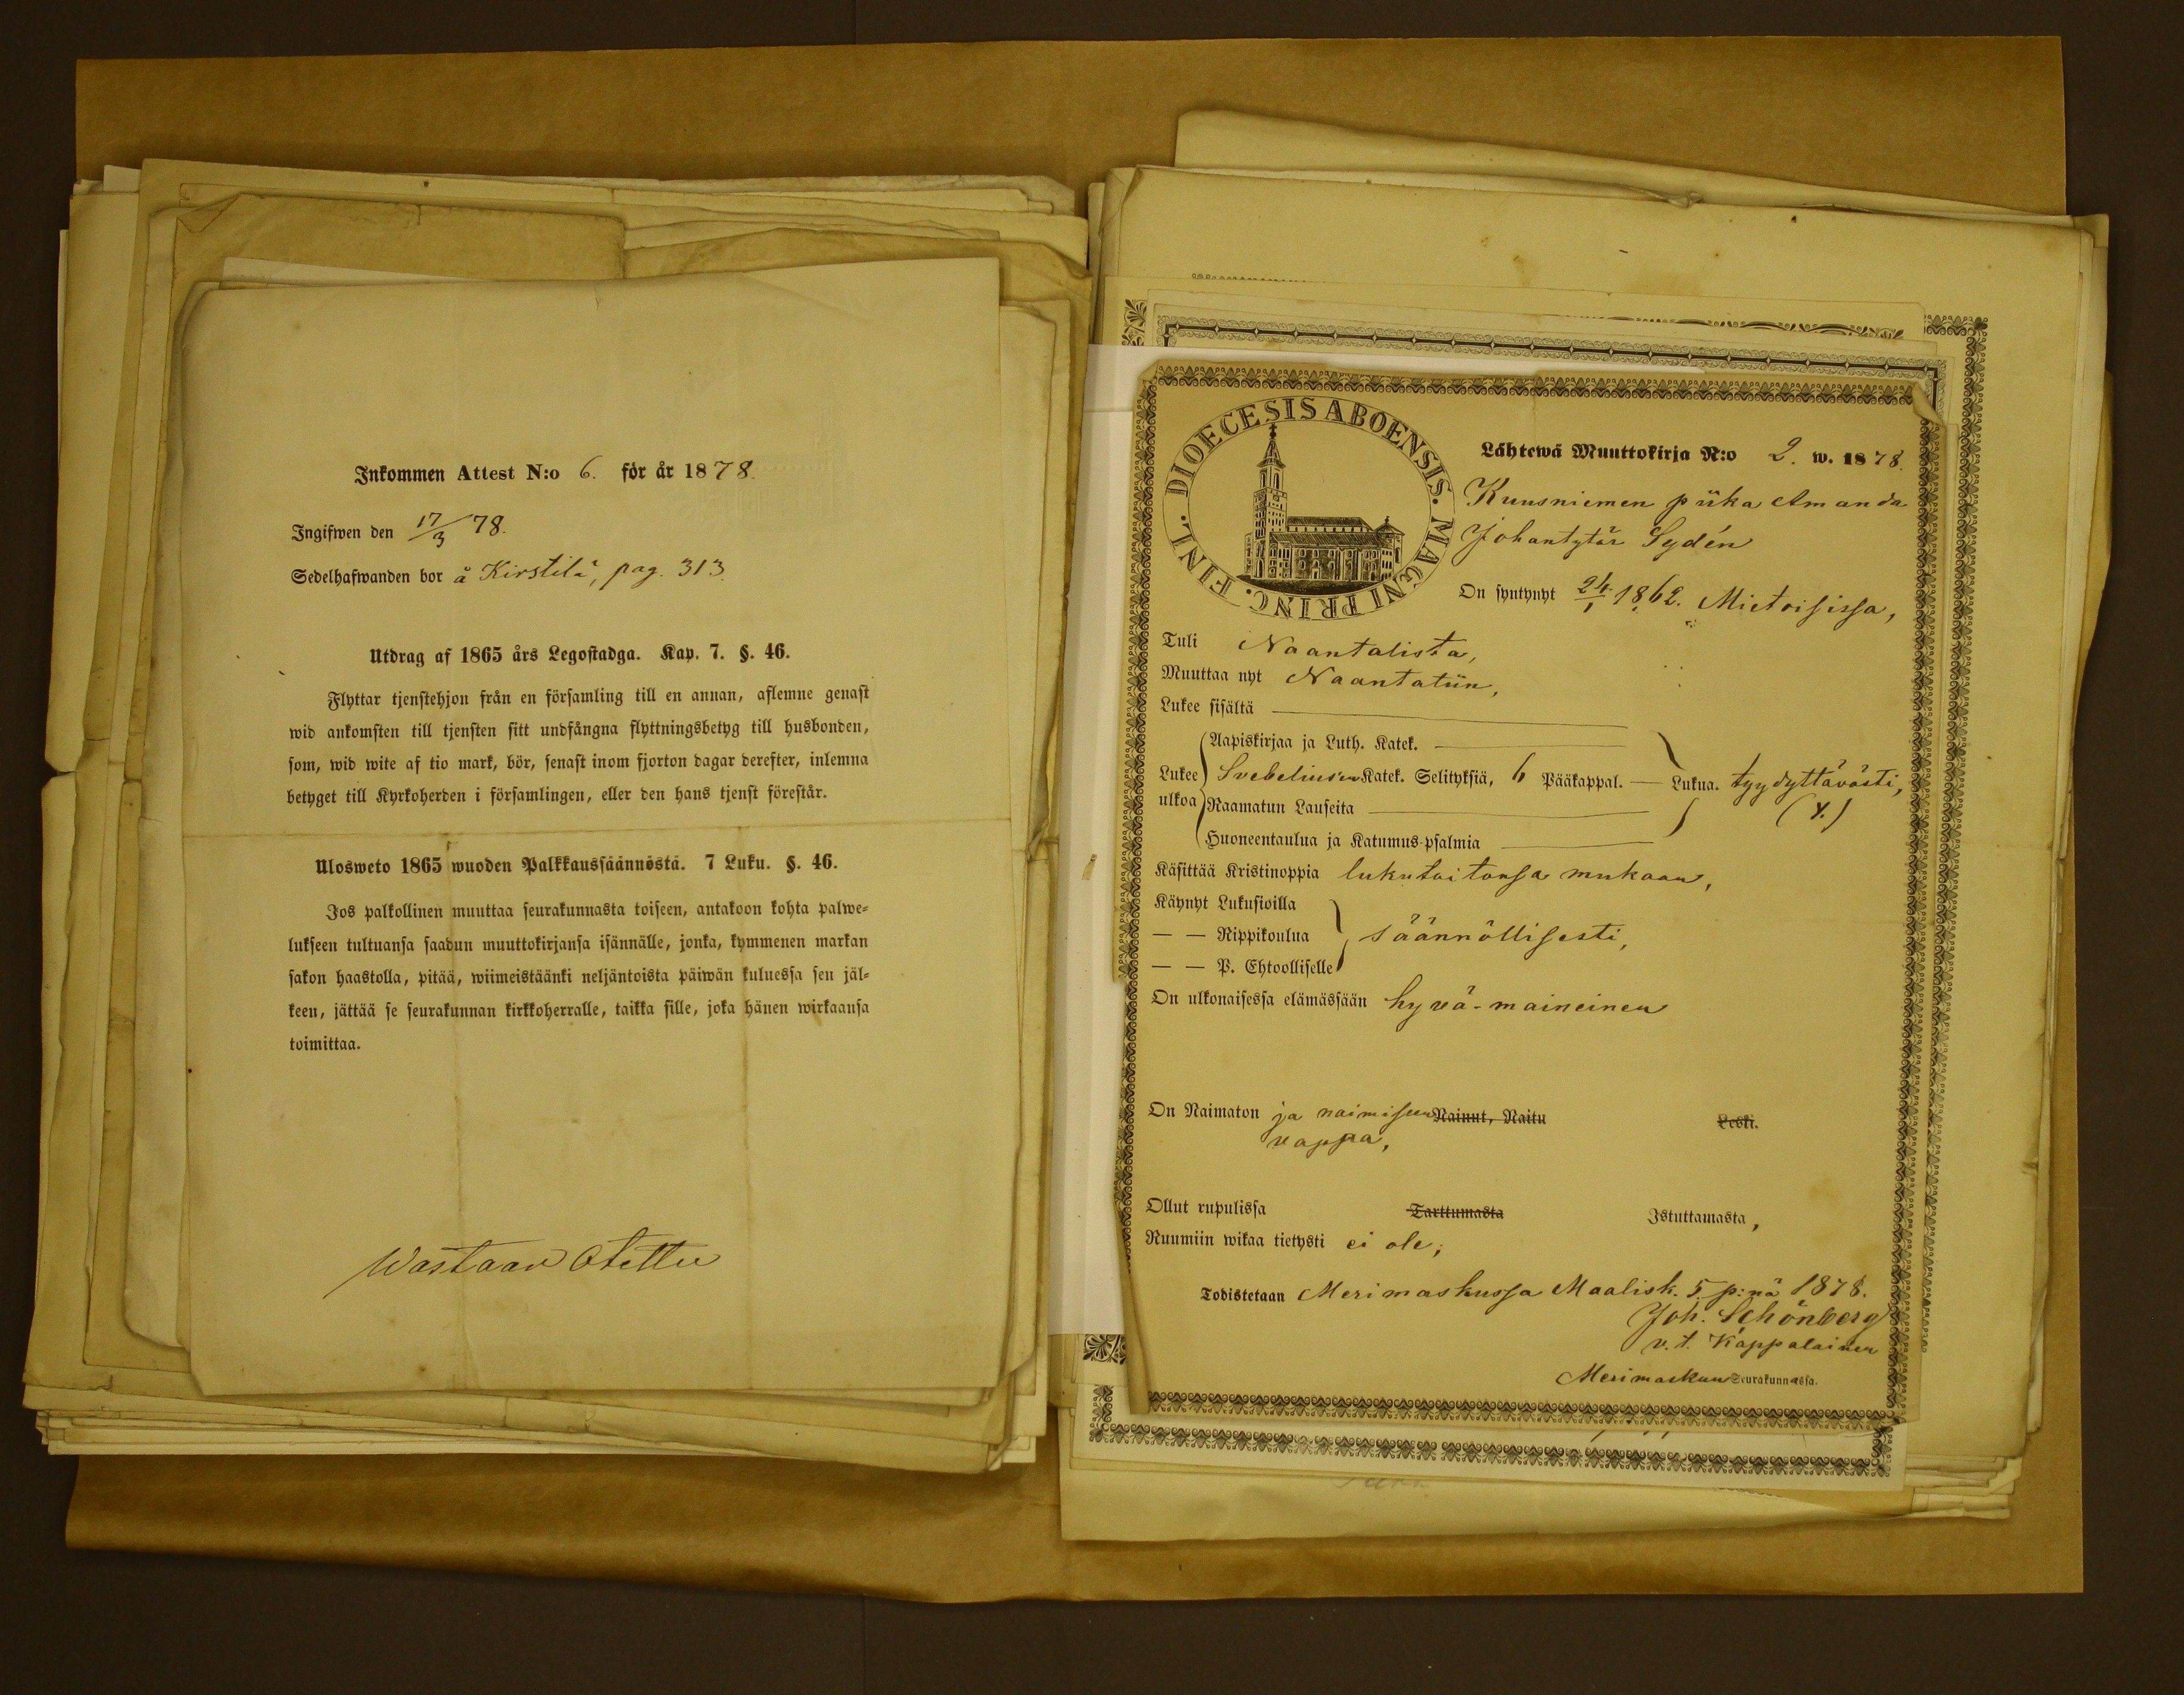 Inkommen Attest N:o 6. för år 1878.
Ingifwen den 17/3 78.
Sedelhafwanden bor å Kirstilä, pag. 313.
Utdrag af 1865 års Legostadga. Kap. 7. §. 46.
Flyttar tjenstehjon från en församling till en annan, aflemne genast
wid ankomsten till tjensten sitt undfångna flyttningsbetyg till husbonden,
som, wid wite af tio mark, bör, senast inom fjorton dagar derefter, inlemna
betyget till Kyrkoherden i församlingen, eller den hans tjenst förestår.
Ulosweto 1865 wuoden Palkkaussäännöstä. 7 Luku. §. 46.
Jos palkollinen muuttaa seurakunnasta toiseen, antakoon kohta palwe=
lukseen tultuansa saadun muuttokirjansa isännälle, jonka, kymmenen markan
sakon haastolla, pitää, wiimeistäänki neljäntoista päiwän kuluessa sen jäl=
keen, jättää se seurakunnan kirkkoherralle, taikka sille, joka hänen wirkaansa
toimittaa.
Wastaan Otettu
DIOECESIS ABOENSIS. MAGNI PRINC. FINL.
Lähtewä Muuttokirja N:o 2. w. 1878.
Kuusniemen piika Amanda
Johantytär Sydén
On syntynyt 24/1 1862. Mietoisissa,
Tuli Naantalista,
Muuttaa nyt Naantaliin,
Lukee sisältä
Aapiskirjaa ja Luth. Katek.
Lukee ulkoa Svebeliusen Katek. Selityksiä, 6 Pääkappal. — Lukua. tyydyttävästi,
Raamatun Lauseita (y.)
Huoneentaulua ja Katumus-psalmia
Käsittää Kristinoppia lukutaitonsa mukaan,
Käynyt Lukusioilla
— — Rippikoulua säännöllisesti,
— — P. Ehtoolliselle
On ulkonaisessa elämässään hyvä-maineinen
On Naimaton ja naimiseen Nainut, Naitu Leski.
vappa,
Ollut rupulissa Tarttumasta Istuttamasta,
Ruumiin wikaa tietysti ei ole;
Todistetaan Merimaskussa Maalisk. 5 p:nä 1878.
Joh. Schönberg
v. t. Kappalainen
Merimaskun Seurakunnassa.